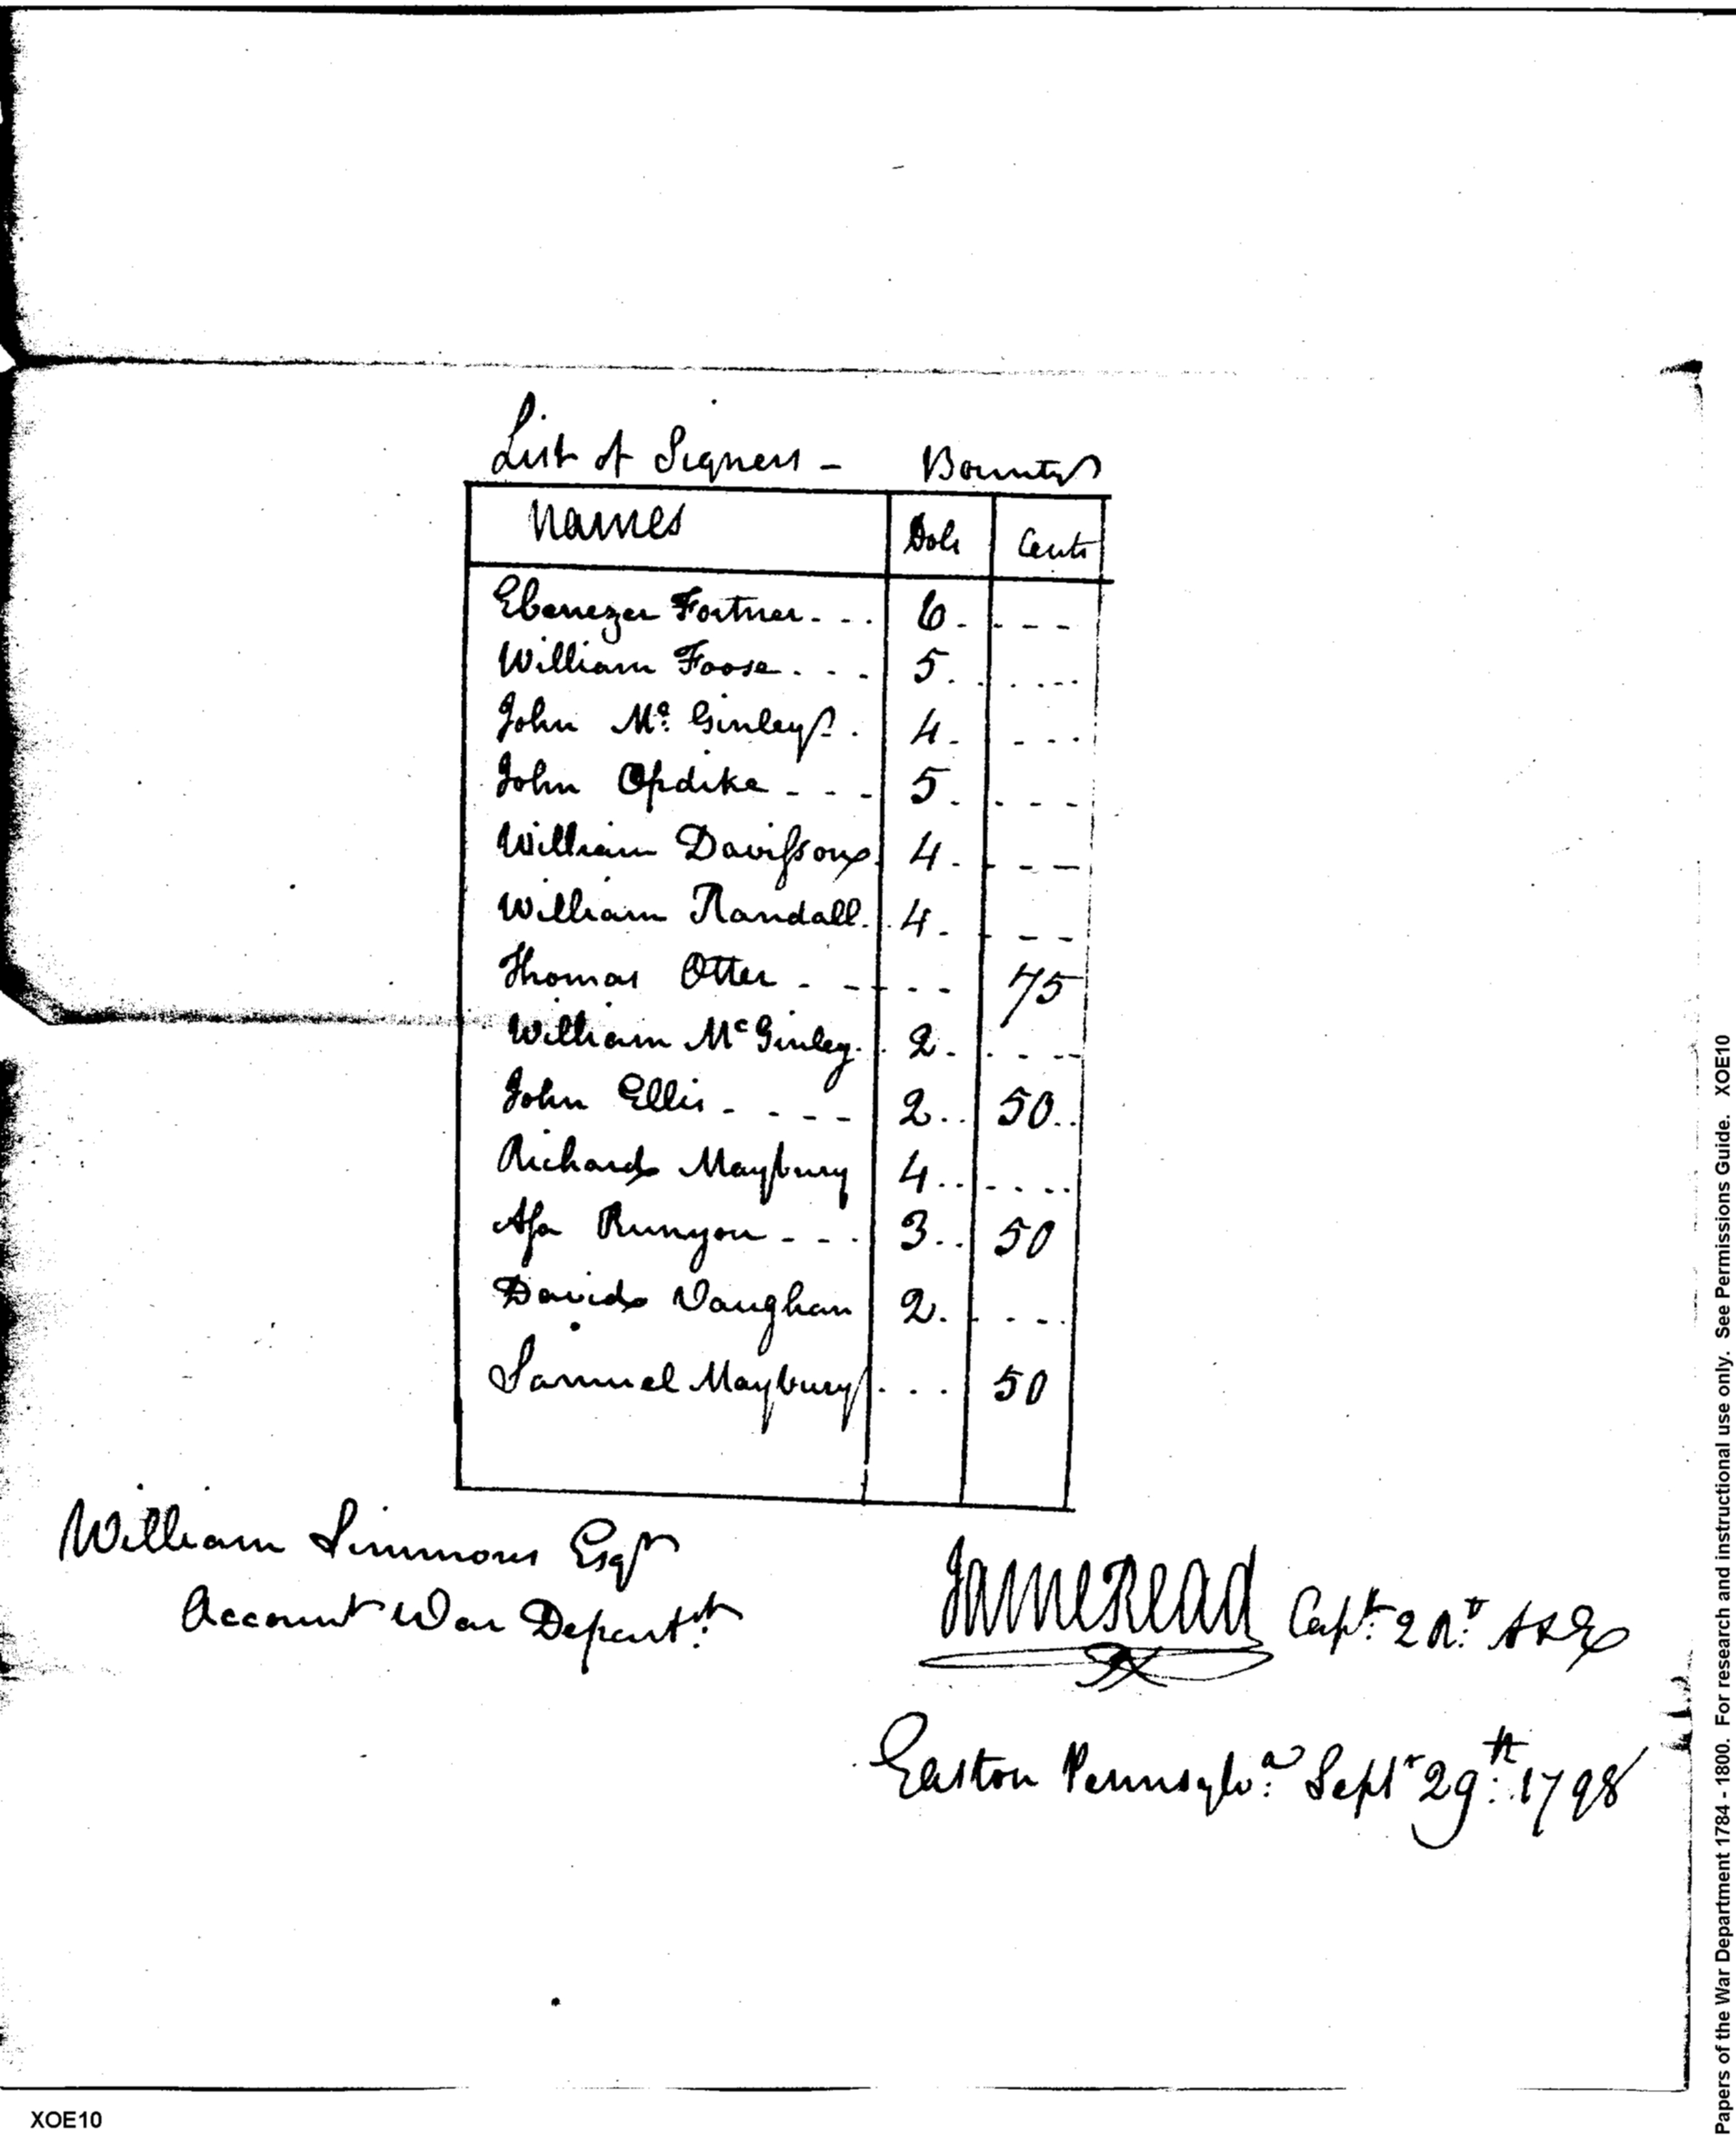 List of Signers - Bounty
Names Dols Cents
Ebenezer Fortner - - - 6 - - - -
William Foose - - - - 5 - - - -
John Mc Ginley - 4 - - - -
John Opdike - - - 5 - - - -
William Davisson 4 - - - -
William Randall 4 - - - -
Thomas Otter - - - - - 75
William McGinley 2 - - - -
John Ellis - - - - 2 50
Richard Maybury 4 - - - -
Asa Runyon - - - 3 50
David Vaughan 2 - - - -
Samuel Maybury - - - 50
William Simmons Esqr
Account War Departt
James Read Capt 2 Rt
Easton Pennsylva Sept 29th 1798
XOE10
Papers of the War Department 1784 - 1800. For research and instructional use only. See Permissions Guide. XOE10